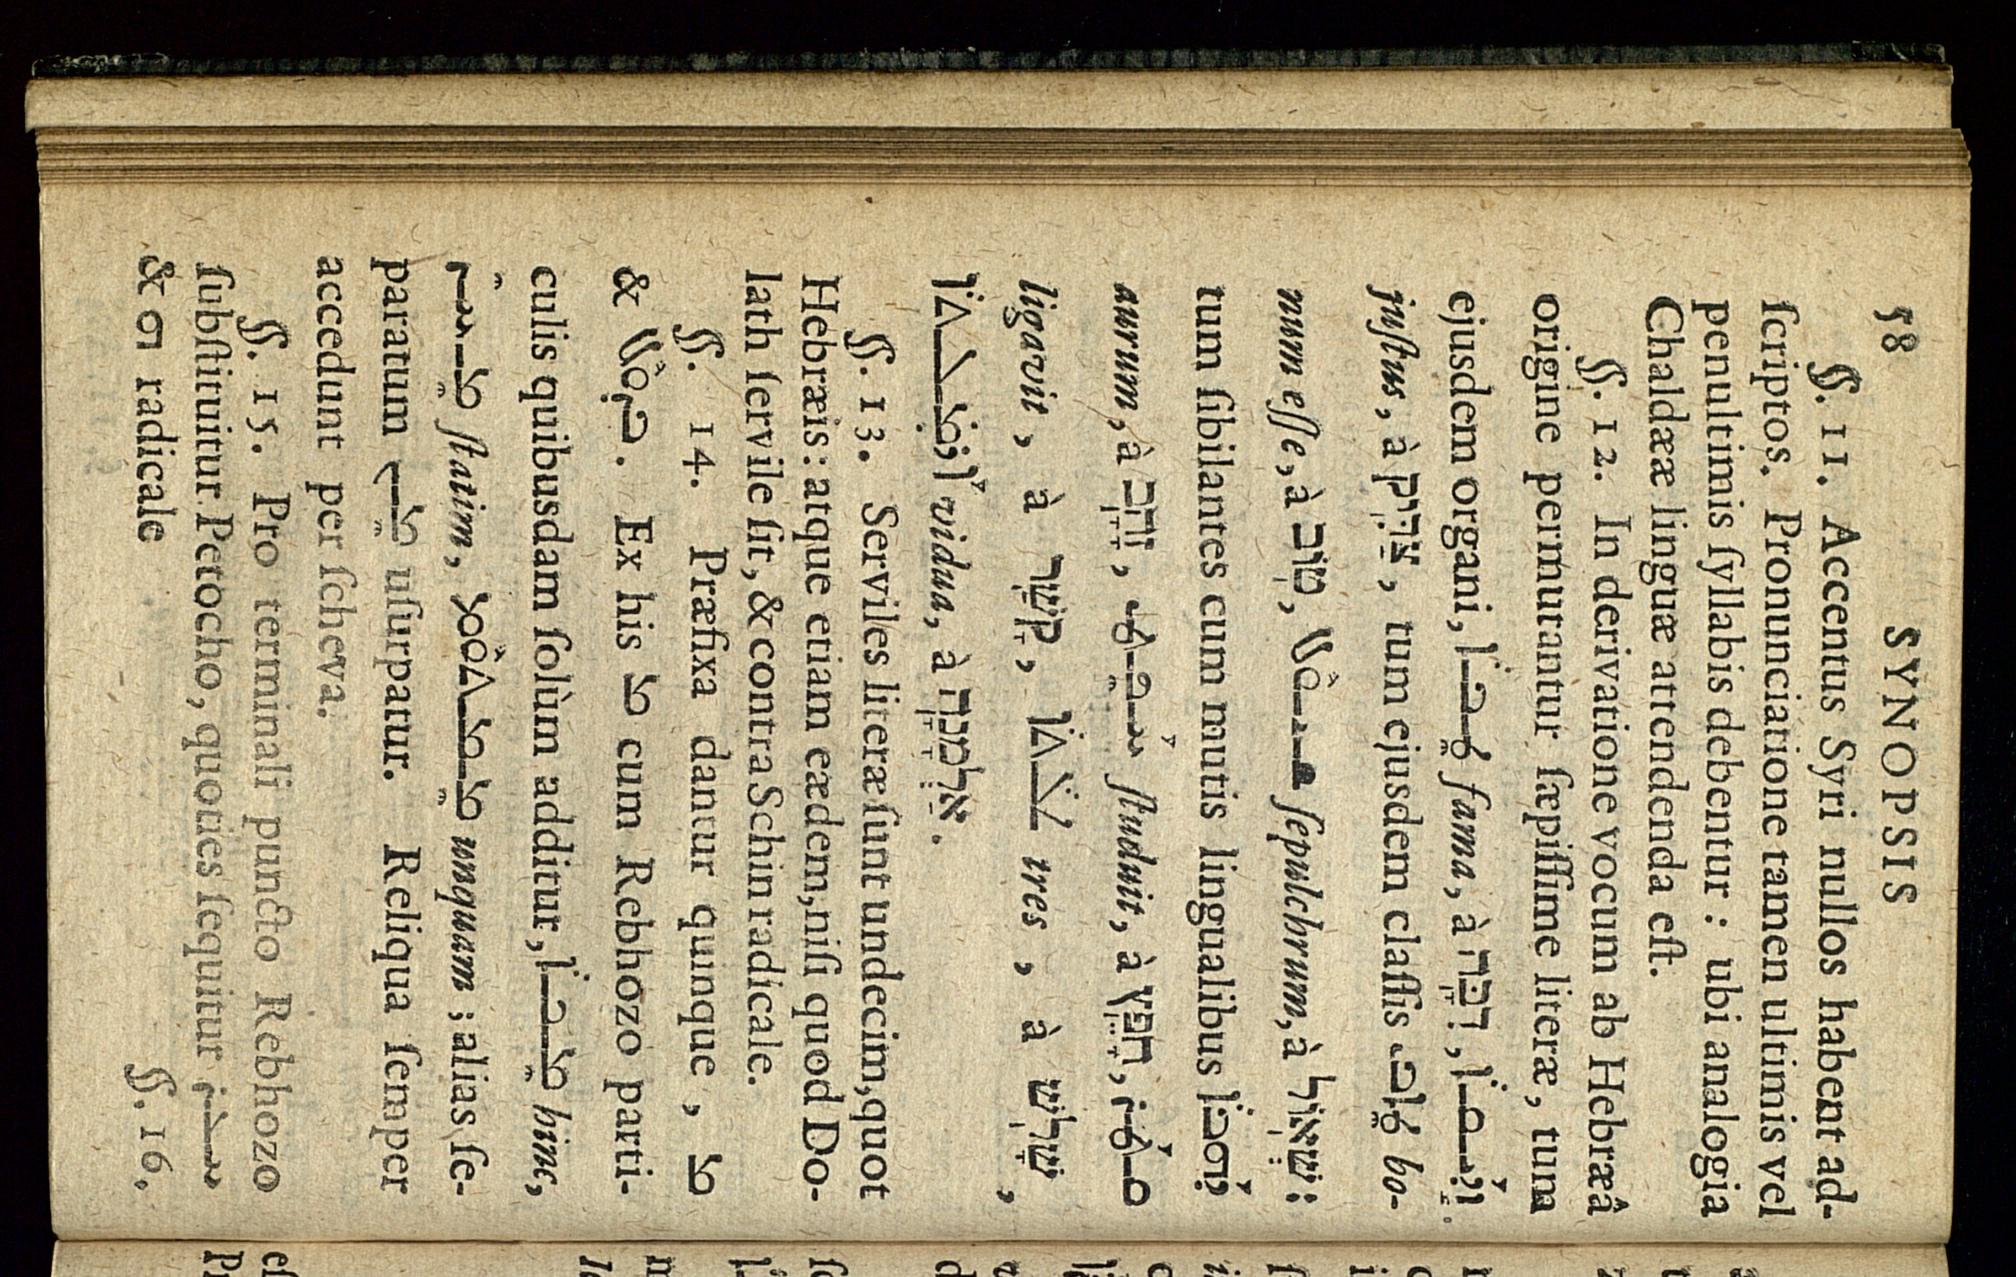 58 SYNOPSIS
§. 11. Accentus Syri nullos habent ad-
ſcriptos. Pronunciatione tamen ultimis vel
penultimis ſyllabis debentur : ubi analogia
Chaldææ linguæ attendenda eſt.
§. 12. In derivatione vocum ab Hebræâ
origine permutantur ſæpiſſime literæ, tum
ejusdem organi, ܛܶܒܳܐ fama, à דִּבָּה, ܙܰܕܺܝܩܳܐ
juſtus, à צַדִּיק, tum ejusdem claſſis ܛܐܒ bo-
num eſſe, à טוֹב, ܫܝܘܠ ſepulchrum, à שְׁאוֹל:
tum ſibilantes cum mutis lingualibus ܕܗܒܐ
aurum, à זָהָב, ܚܦܛ ſtuduit, à חָפֵץ, ܩܛܪ
ligavit, à קָשַׁר, ܬܠܬܐ tres, à שָׁלֹשׁ,
ܐܪܡܠܬܐ vidua, à אַלְמָנָה.
§. 13. Serviles literæ ſunt undecim, quot
Hebræis: atque etiam eædem, niſi quod Do-
lath ſervile ſit, & contra Schin radicale.
§. 14. Præfixa dantur quinque, ܡ
& ܒܕܘܠ. Ex his ܡ cum Rebhozo parti-
culis quibusdam ſolùm additur, ܡܟܐ hinc,
ܡܚܕܐ ſtatim, ܡܡܬܘܡ unquam ; alias ſe-
paratum ܡܢ uſurpatur. Reliqua ſemper
accedunt per ſcheva.
§. 15. Pro terminali puncto Rebhozo
ſubſtituitur Petocho, quoties ſequitur
& ܗ radicale
§. 16.